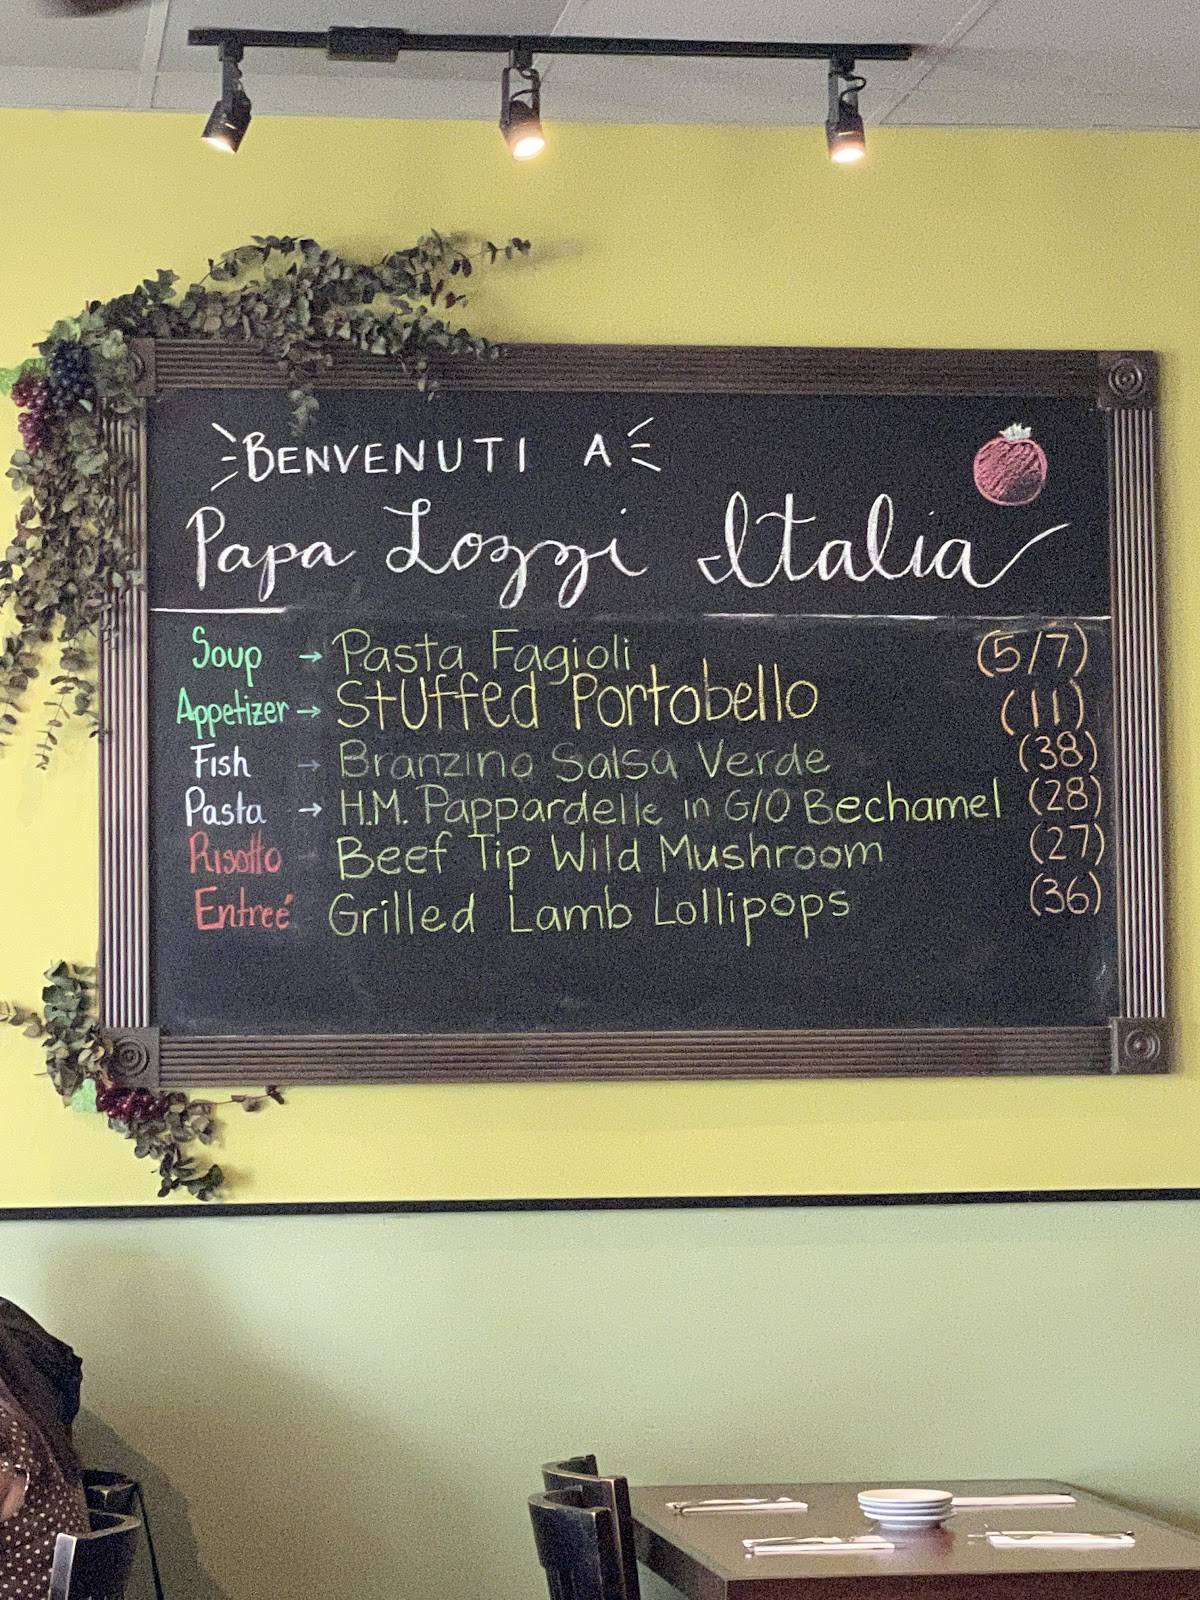 BENVENUTI A
Papa Lozzi Italia
Soup → Pasta Fagioli (5/7)
Appetizer → Stuffed Portobello (11)
Fish → Branzino Salsa Verde (38)
Pasta → H.M. Pappardelle in G/O Bechamel (28)
Risotto - Beef Tip Wild Mushroom (27)
Entreé Grilled Lamb Lollipops (36)